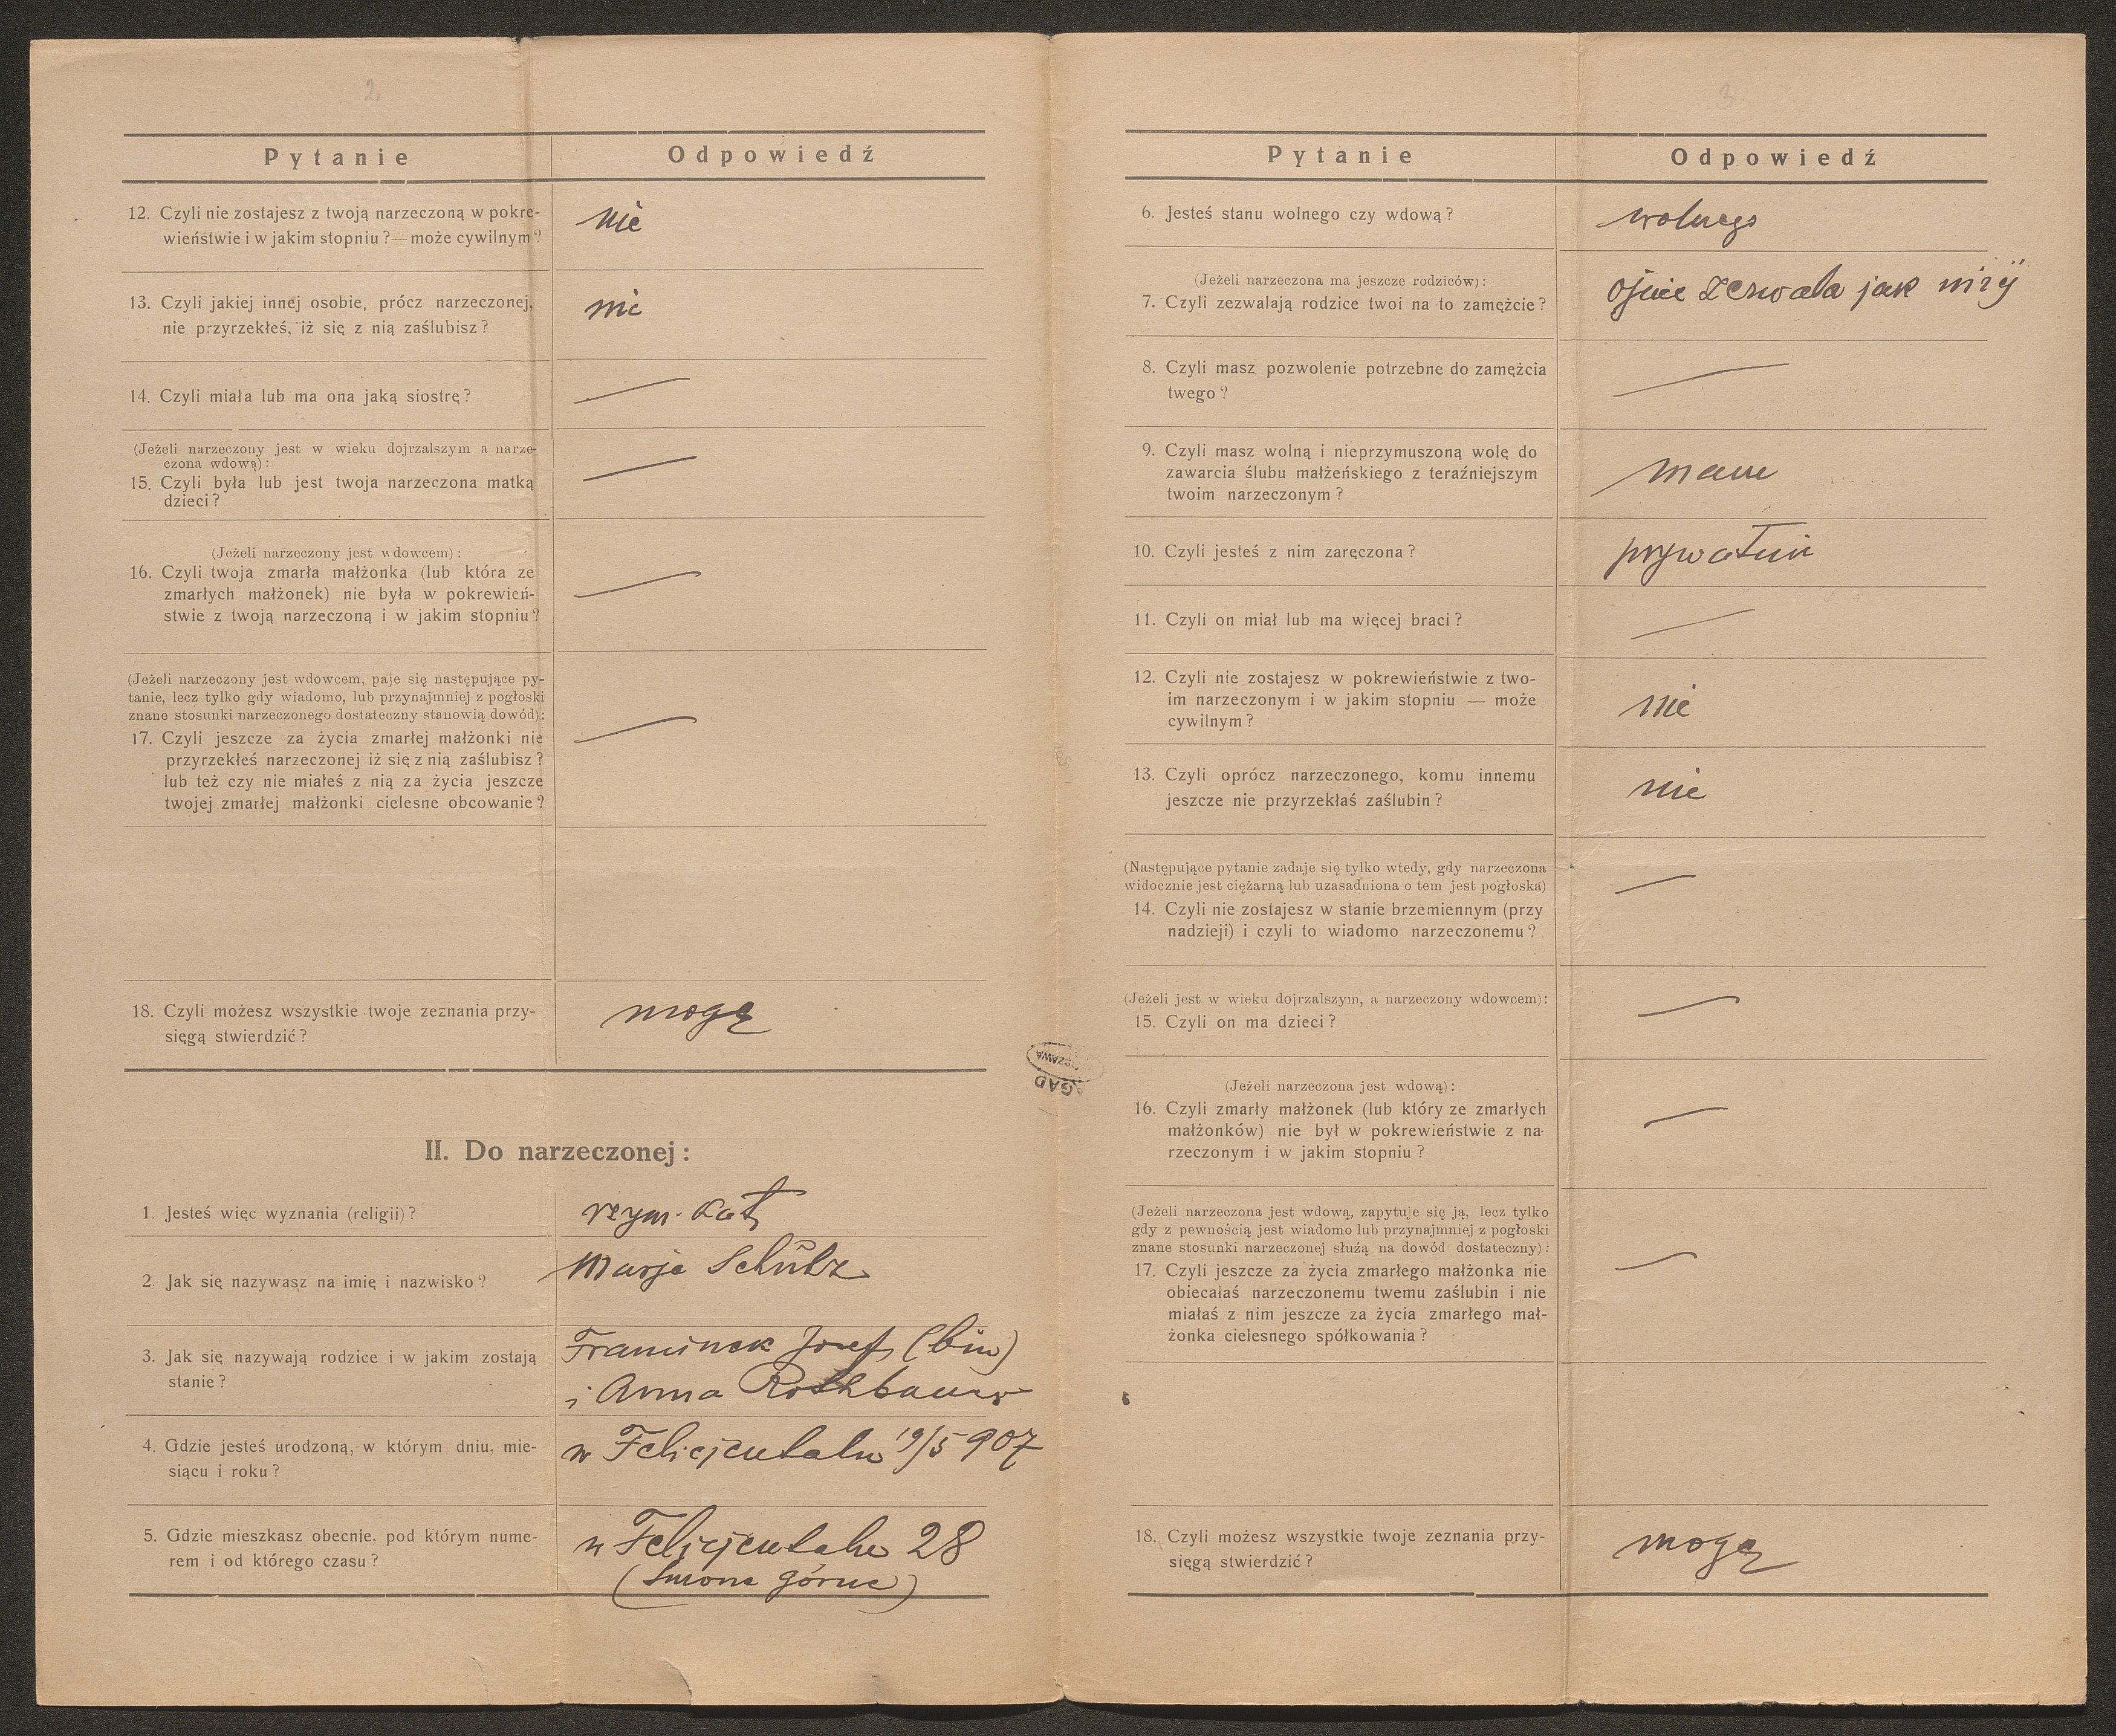 2
Pytanie
Odpowiedź
12. Czyli nie zostajesz z twoją narzeczoną w pokre-
wieństwie i w jakim stopniu ?— może cywilnym ?
nie
13. Czyli jakiej innej osobie, prócz narzeczonej,
nie przyrzekłeś, iż się z nią zaślubisz ?
nie
14. Czyli miała lub ma ona jaką siostrę ?
—
(Jeżeli narzeczony jest w wieku dojrzalszym a narze-
czona wdową) :
15. Czyli była lub jest twoja narzeczona matką
dzieci ?
—
(Jeżeli narzeczony jest wdowcem) :
16. Czyli twoja zmarła małżonka (lub która ze
zmarłych małżonek) nie była w pokrewień-
stwie z twoją narzeczoną i w jakim stopniu ?
—
(Jeżeli narzeczony jest wdowcem, paje się następujące py-
tanie, lecz tylko gdy wiadomo, lub przynajmniej z pogłoski
znane stosunki narzeczonego dostateczny stanowią dowód) :
17. Czyli jeszcze za życia zmarłej małżonki nie
przyrzekłeś narzeczonej iż się z nią zaślubisz ?
lub też czy nie miałeś z nią za życia jeszcze
twojej zmarłej małżonki cielesne obcowanie ?
—
18. Czyli możesz wszystkie twoje zeznania przy-
sięgą stwierdzić ?
mogę
II. Do narzeczonej :
1. Jesteś więc wyznania (religii) ?
rzym. kat
2. Jak się nazywasz na imię i nazwisko ?
Marja Schütz
3. Jak się nazywają rodzice i w jakim zostają
stanie ?
Franciszek Josef
i Anna Rothbauer
4. Gdzie jesteś urodzoną, w którym dniu, mie-
siącu i roku ?
w Felicjentalu 19/5 907
5. Gdzie mieszkasz obecnie, pod którym nume-
rem i od którego czasu ?
w Felicjentalu 28
(Smorze górne)
GAD
3
Pytanie
Odpowiedź
6. Jesteś stanu wolnego czy wdową ?
wolnego
(Jeżeli narzeczona ma jeszcze rodziców) :
7. Czyli zezwalają rodzice twoi na to zamężcie ?
ojciec zezwala jak niżej
8. Czyli masz pozwolenie potrzebne do zamężcia
twego ?
—
9. Czyli masz wolną i nieprzymuszoną wolę do
zawarcia ślubu małżeńskiego z teraźniejszym
twoim narzeczonym ?
mam
10. Czyli jesteś z nim zaręczona ?
prywatnie
11. Czyli on miał lub ma więcej braci ?
—
12. Czyli nie zostajesz w pokrewieństwie z two-
im narzeczonym i w jakim stopniu — może
cywilnym ?
nie
13. Czyli oprócz narzeczonego, komu innemu
jeszcze nie przyrzekłaś zaślubin ?
nie
(Następujące pytanie zadaje się tylko wtedy, gdy narzeczona
widocznie jest ciężarną lub uzasadniona o tem jest pogłoska)
14. Czyli nie zostajesz w stanie brzemiennym (przy
nadzieji) i czyli to wiadomo narzeczonemu ?
—
(Jeżeli jest w wieku dojrzalszym, a narzeczony wdowcem) :
15. Czyli on ma dzieci ?
—
(Jeżeli narzeczona jest wdową) :
16. Czyli zmarły małżonek (lub który ze zmarłych
małżonków) nie był w pokrewieństwie z na-
rzeczonym i w jakim stopniu ?
—
(Jeżeli narzeczona jest wdową, zapytuje się ją, lecz tylko
gdy z pewnością jest wiadomo lub przynajmniej z pogłoski
znane stosunki narzeczonej służą na dowód dostateczny) :
17. Czyli jeszcze za życia zmarłego małżonka nie
obiecałaś narzeczonemu twemu zaślubin i nie
miałaś z nim jeszcze za życia zmarłego mał-
żonka cielesnego spółkowania ?
—
18. Czyli możesz wszystkie twoje zeznania przy-
sięgą stwierdzić ?
mogę